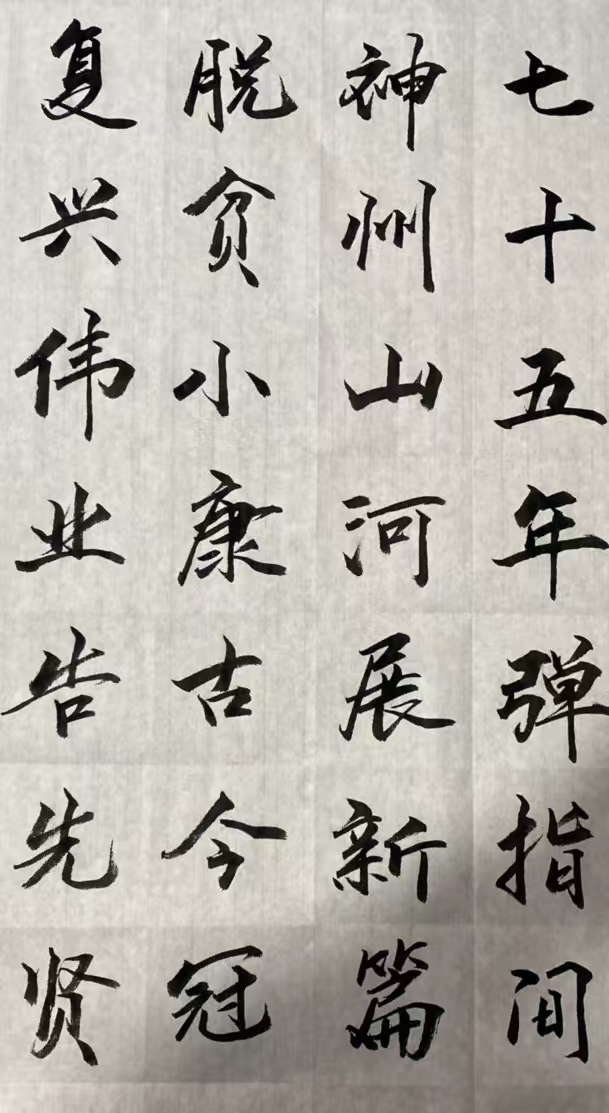 七十五年弹指间
神州山河展新篇
脱贫小康古今冠
复兴伟业告先贤